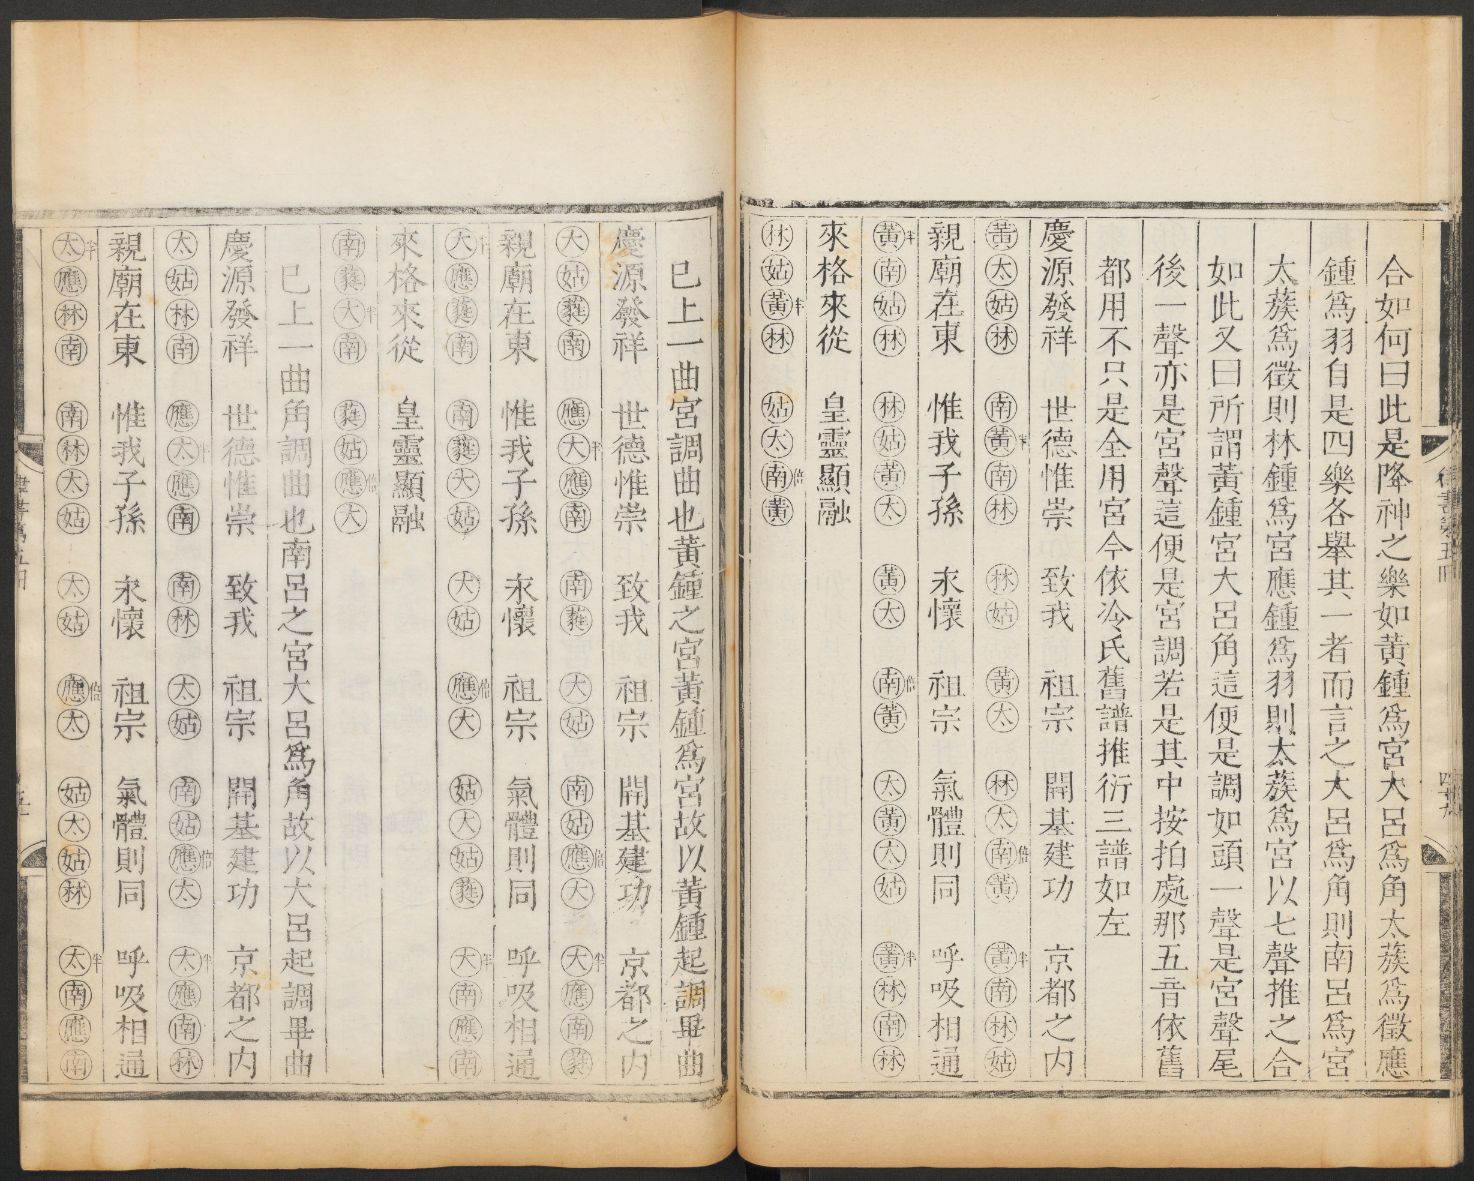 合如何曰此是降神之樂如黃鍾爲宮大呂爲角太蔟爲徵應
鍾爲羽自是四樂各舉其一者而言之大呂爲角則南呂爲宮
太蔟爲徵則林鍾爲宮應鍾爲羽則太蔟爲宮以七聲推之合
如此又曰所謂黃鍾宮大呂角這便是調如頭一聲是宮聲尾
後一聲亦是宮聲這便是宮調若是其中按拍處那五音依舊
都用不只是全用宮今依冷氏舊譜推衍三譜如左
慶源發祥 世德惟崇 致我 祖宗 開基建功 京都之內
黃太姑林 南黃半南林 林姑 黃太 林太南倍黃 黃半南林姑
親廟在東 惟我子孫 永懷 祖宗 氣體則同 呼吸相通
黃半南姑林 林姑黃太 黃太 南倍黃 太黃太姑 黃半林南林
來格來從 皇靈顯融
林姑黃半林 姑太南倍黃
已上一曲宮調曲也黃鍾之宮黃鍾爲宮故以黃鍾起調畢曲
慶源發祥 世德惟崇 致我 祖宗 開基建功 京都之內
大姑蕤南 應大半應南 南蕤 大姑 南姑應倍大 大半應南蕤
親廟在東 惟我子孫 永懷 祖宗 氣體則同 呼吸相通
大半應蕤南 南蕤大姑 大姑 應倍大 姑大姑蕤 大半南應南
來格來從 皇靈顯融
南蕤大半南 蕤姑應倍大
已上一曲角調曲也南呂之宮大呂爲角故以大呂起調畢曲
慶源發祥 世德惟崇 致我 祖宗 開基建功 京都之內
太姑林南 應太半應南 南林 太姑 南姑應倍太 太半應南林
親廟在東 惟我子孫 永懷 祖宗 氣體則同 呼吸相通
太半應林南 南林太姑 太姑 應倍太 姑太姑林 太半南應南